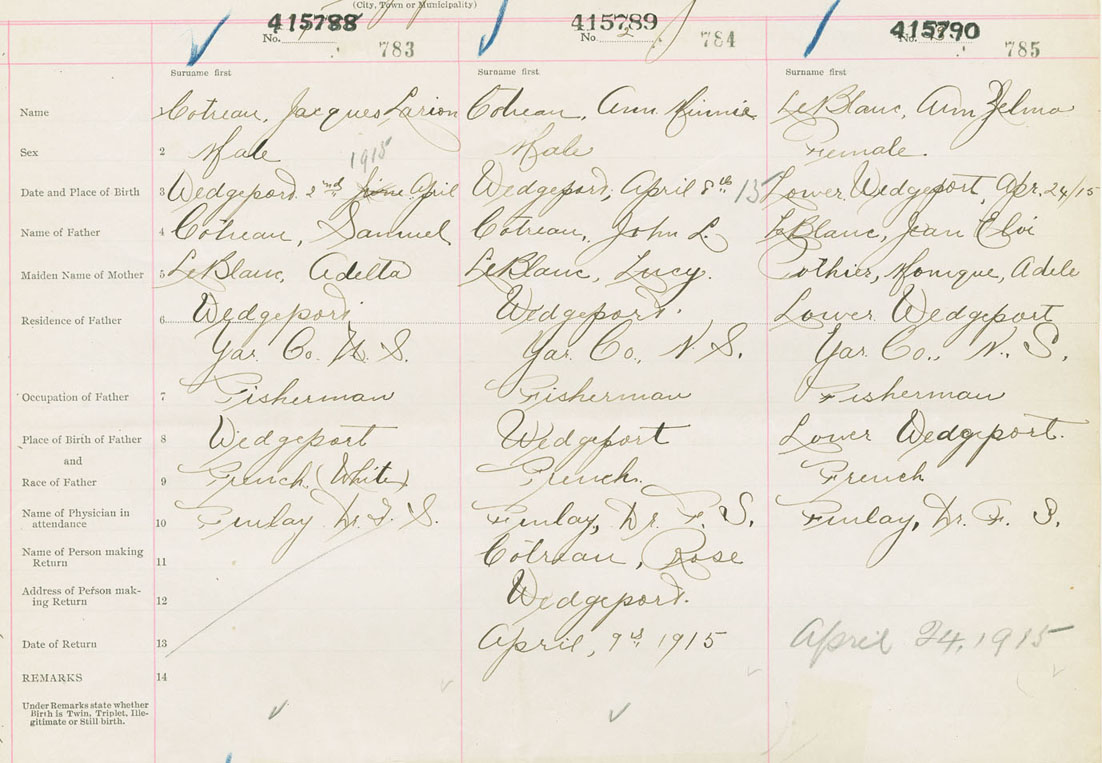 (City, Town or Municipality)
415788 415789 415790
No. 1 No. 2 No.
783 784 785
Surname first Surname first Surname first
Name 1 Cotreau, Jacques Larion Cotreau, Ann Minnie LeBlanc, Ann Zelma
Sex 2 Male Male Female.
1915
Date and Place of Birth 3 Wedgeport 2nd June April Wedgeport, April 8th 15 Lower Wedgeport, Apr. 24/15
Name of Father 4 Cotreau, Samuel Cotreau, John L. LeBlanc, Jean Eloi
Maiden Name of Mother 5 LeBlanc, Adella LeBlanc, Lucy. Pothier, Monique, Adele
Residence of Father 6 Wedgeport Wedgeport. Lower Wedgeport
Yar. Co. N. S. Yar. Co., N. S. Yar. Co., N. S.
Occupation of Father 7 Fisherman Fisherman Fisherman
Place of Birth of Father 8 Wedgeport Wedgeport Lower Wedgeport.
and
Race of Father 9 French (White) French. French
Name of Physician in
attendance 10 Finlay Dr. F. S. Finlay, Dr. F. S. Finlay, Dr. F. S.
Name of Person making
Return 11 Cotreau, Rose
Address of Person mak-
ing Return 12 Wedgeport.
Date of Return 13 April, 9th 1915 April 24, 1915
REMARKS 14
Under Remarks state whether
Birth is Twin, Triplet, Ille-
gitimate or Still birth.